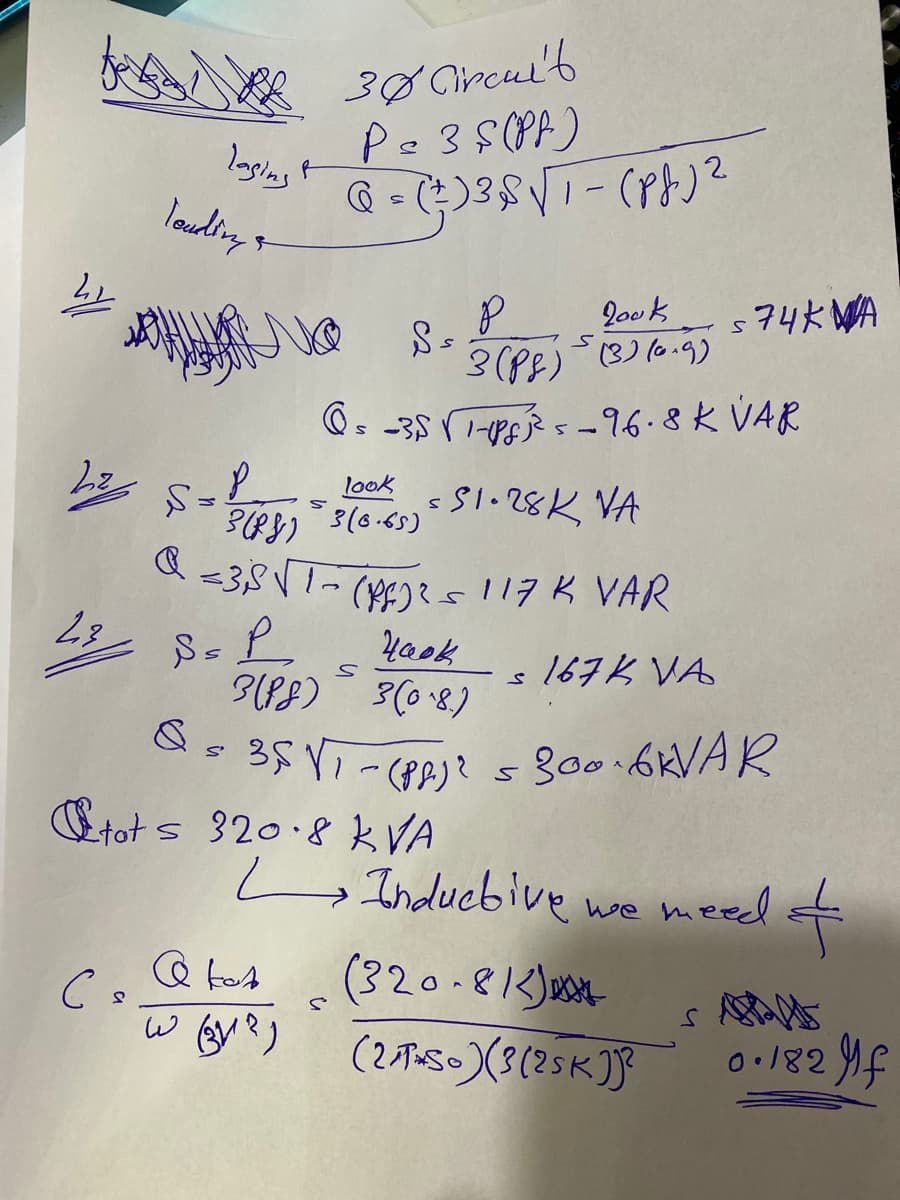 3Ø Circuit
P = 3 S (Pf)
laging
Q = (±) 3S √1 - (Pf)²
leading
L1
S = P / 3(Pf) = 200k / (3)(0.9) = 74K VA
Q = -3S √1-(Pf)² = -96.8 K VAR
L2
S = P / 3(Pf) = 100K / 3(0.65) = 51.28K VA
Q = 3S √1 - (Pf)² = 117 K VAR
L3
S = P / 3(Pf) = 400k / 3(0.8) = 167K VA
Q = 3S √1 - (Pf)² = 300.6KVAR
Qtot = 320.8 kVA
Inductive we need
C = Q tot / ω (3V²) = (320.8K) / (2π*50)(3(25K))² = 0.182 Mf